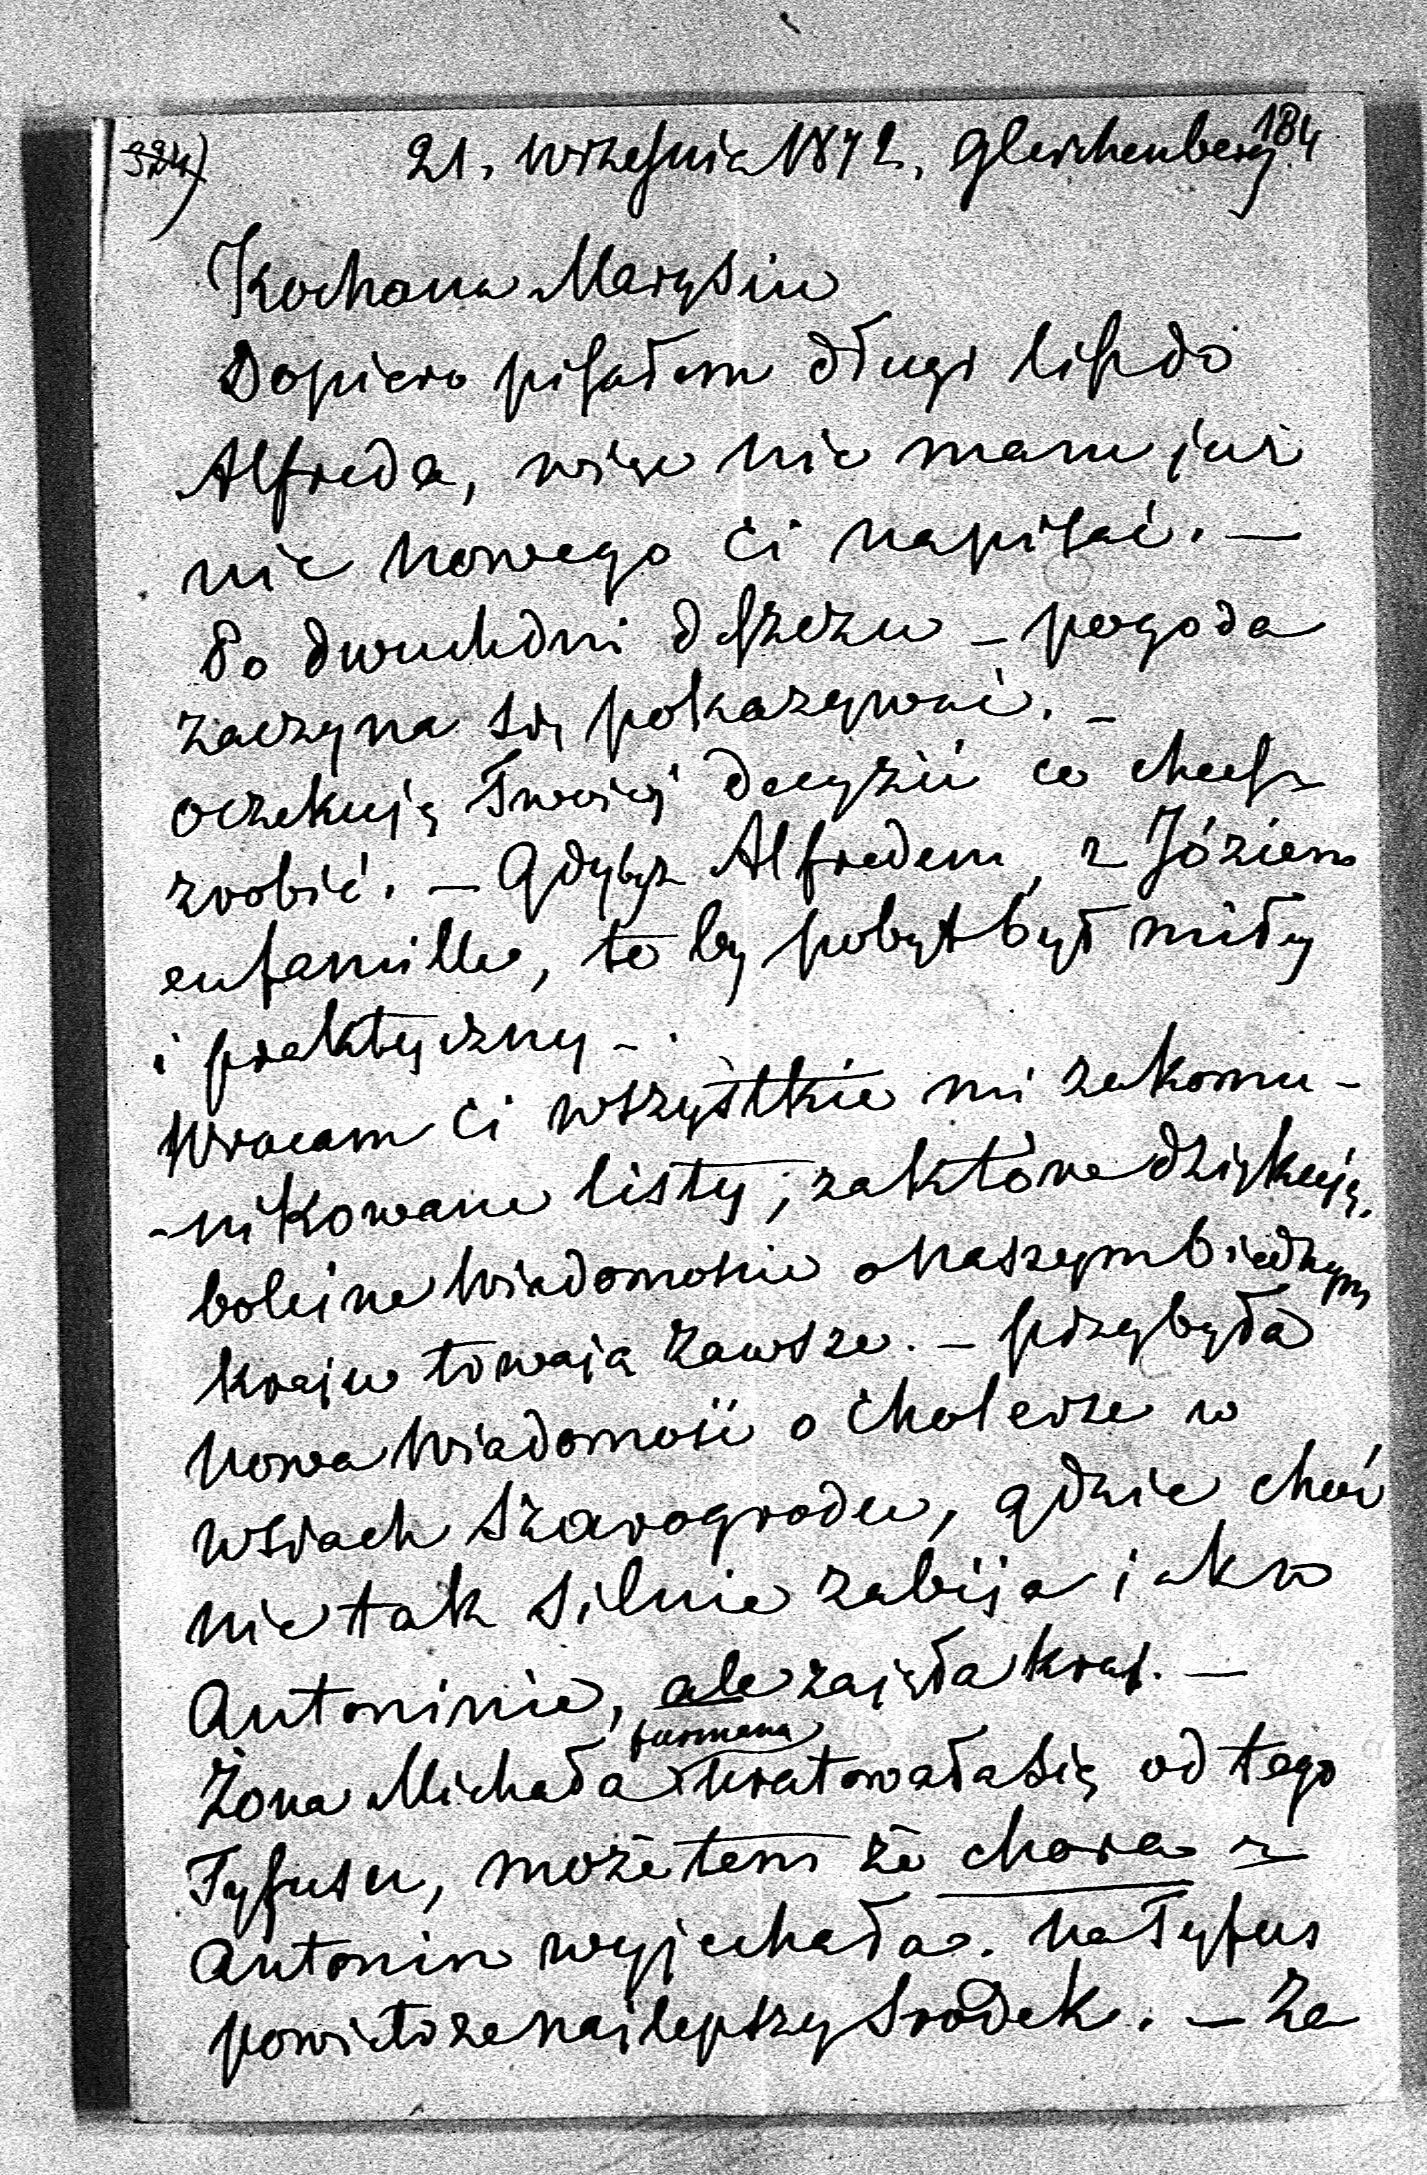 184
324)
21. września 1872. Gleichenberg
Kochana Marysiu
Dopiero pisałem długi list do
Alfreda, więc nie mam już
nic nowego Ci napisać. —
Po dwuch dni deszczu – pogoda
zaczyna się pokazywać. –
oczekuję Twoiéj decyzii co chcesz
zrobić. – Gdybyś z Alfredem, z Józiem
en famille, to by pobyt był miły
i praktyczny –.
Wracam Ci wszystkie mi zakomu-
-nikowane listy, za które dziękuję.
boleśne wiadomoście o naszym biednym
kraju trwają zawsze. – przybyła
nowa wiadomość o Cholerze w
wsiach Szarogrodu, gdzie choć
nie tak silnie zabija jak w
Antoninie, ale zajęła kraj. —
furmana
Żona Michała uratowała się od tego
Tyfusu, może tem że chora z
Antonin wyjechała. na Tyfus
powietrze najlepszy środek. – Za